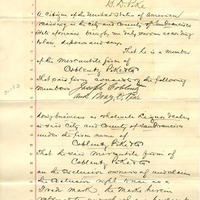 B. D. Pike
A citizen of the United States of America
residing in the City and County of San Francisco
State of being duly sworn according
to law, deposes and says: That he is a member
of the Mercantile firm of
Coblentz Pike & Co
That said firm consists of the following
members Joseph Coblentz
and Benj. D. Pike
doing business as wholesale Liquor dealers
in said City and County of San Francisco
under the firm name of
Coblentz, Pike & Co
That the said Mercantile firm of
Coblentz Pike & Co
are the exclusive owners of and claim
the exclusive right when as a
Trade Mark the Marks herein